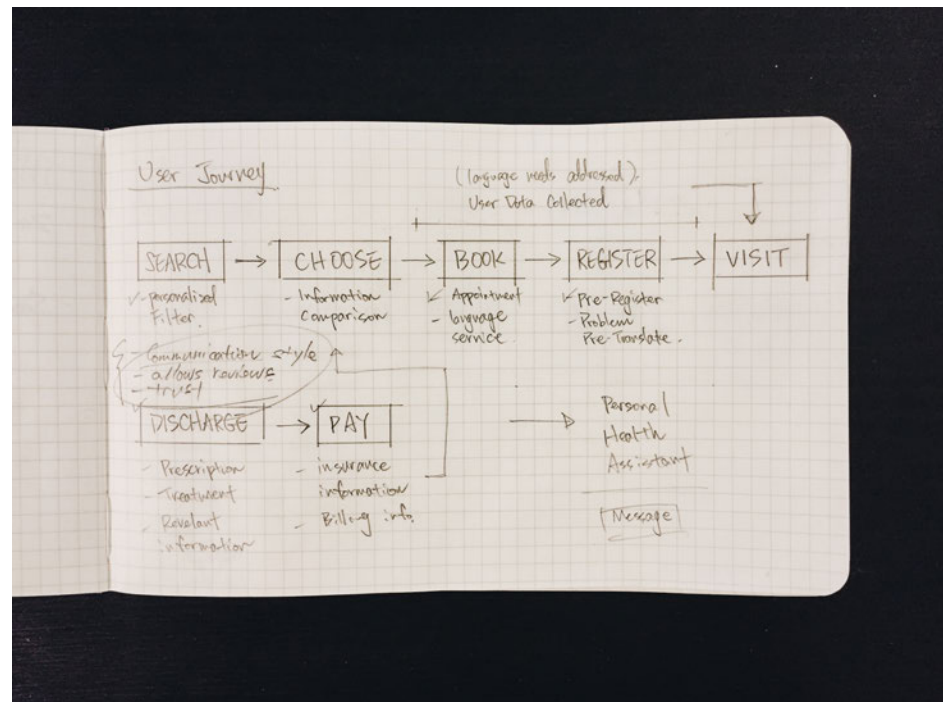 User Journey
(language needs addressed).
User Data Collected
SEARCH
CHOOSE
BOOK
REGISTER
VISIT
- personalized
Filter.
- Information
Comparison
- Appointment
- language
service
- Pre-Register
- Problem
Pre-Translate.
- Communication style
- allows reviews
- trust
DISCHARGE
PAY
- Prescription
- Treatment
- Revelant
information
- insurance
information
- Billing info.
Personal
Health
Assistant
Message